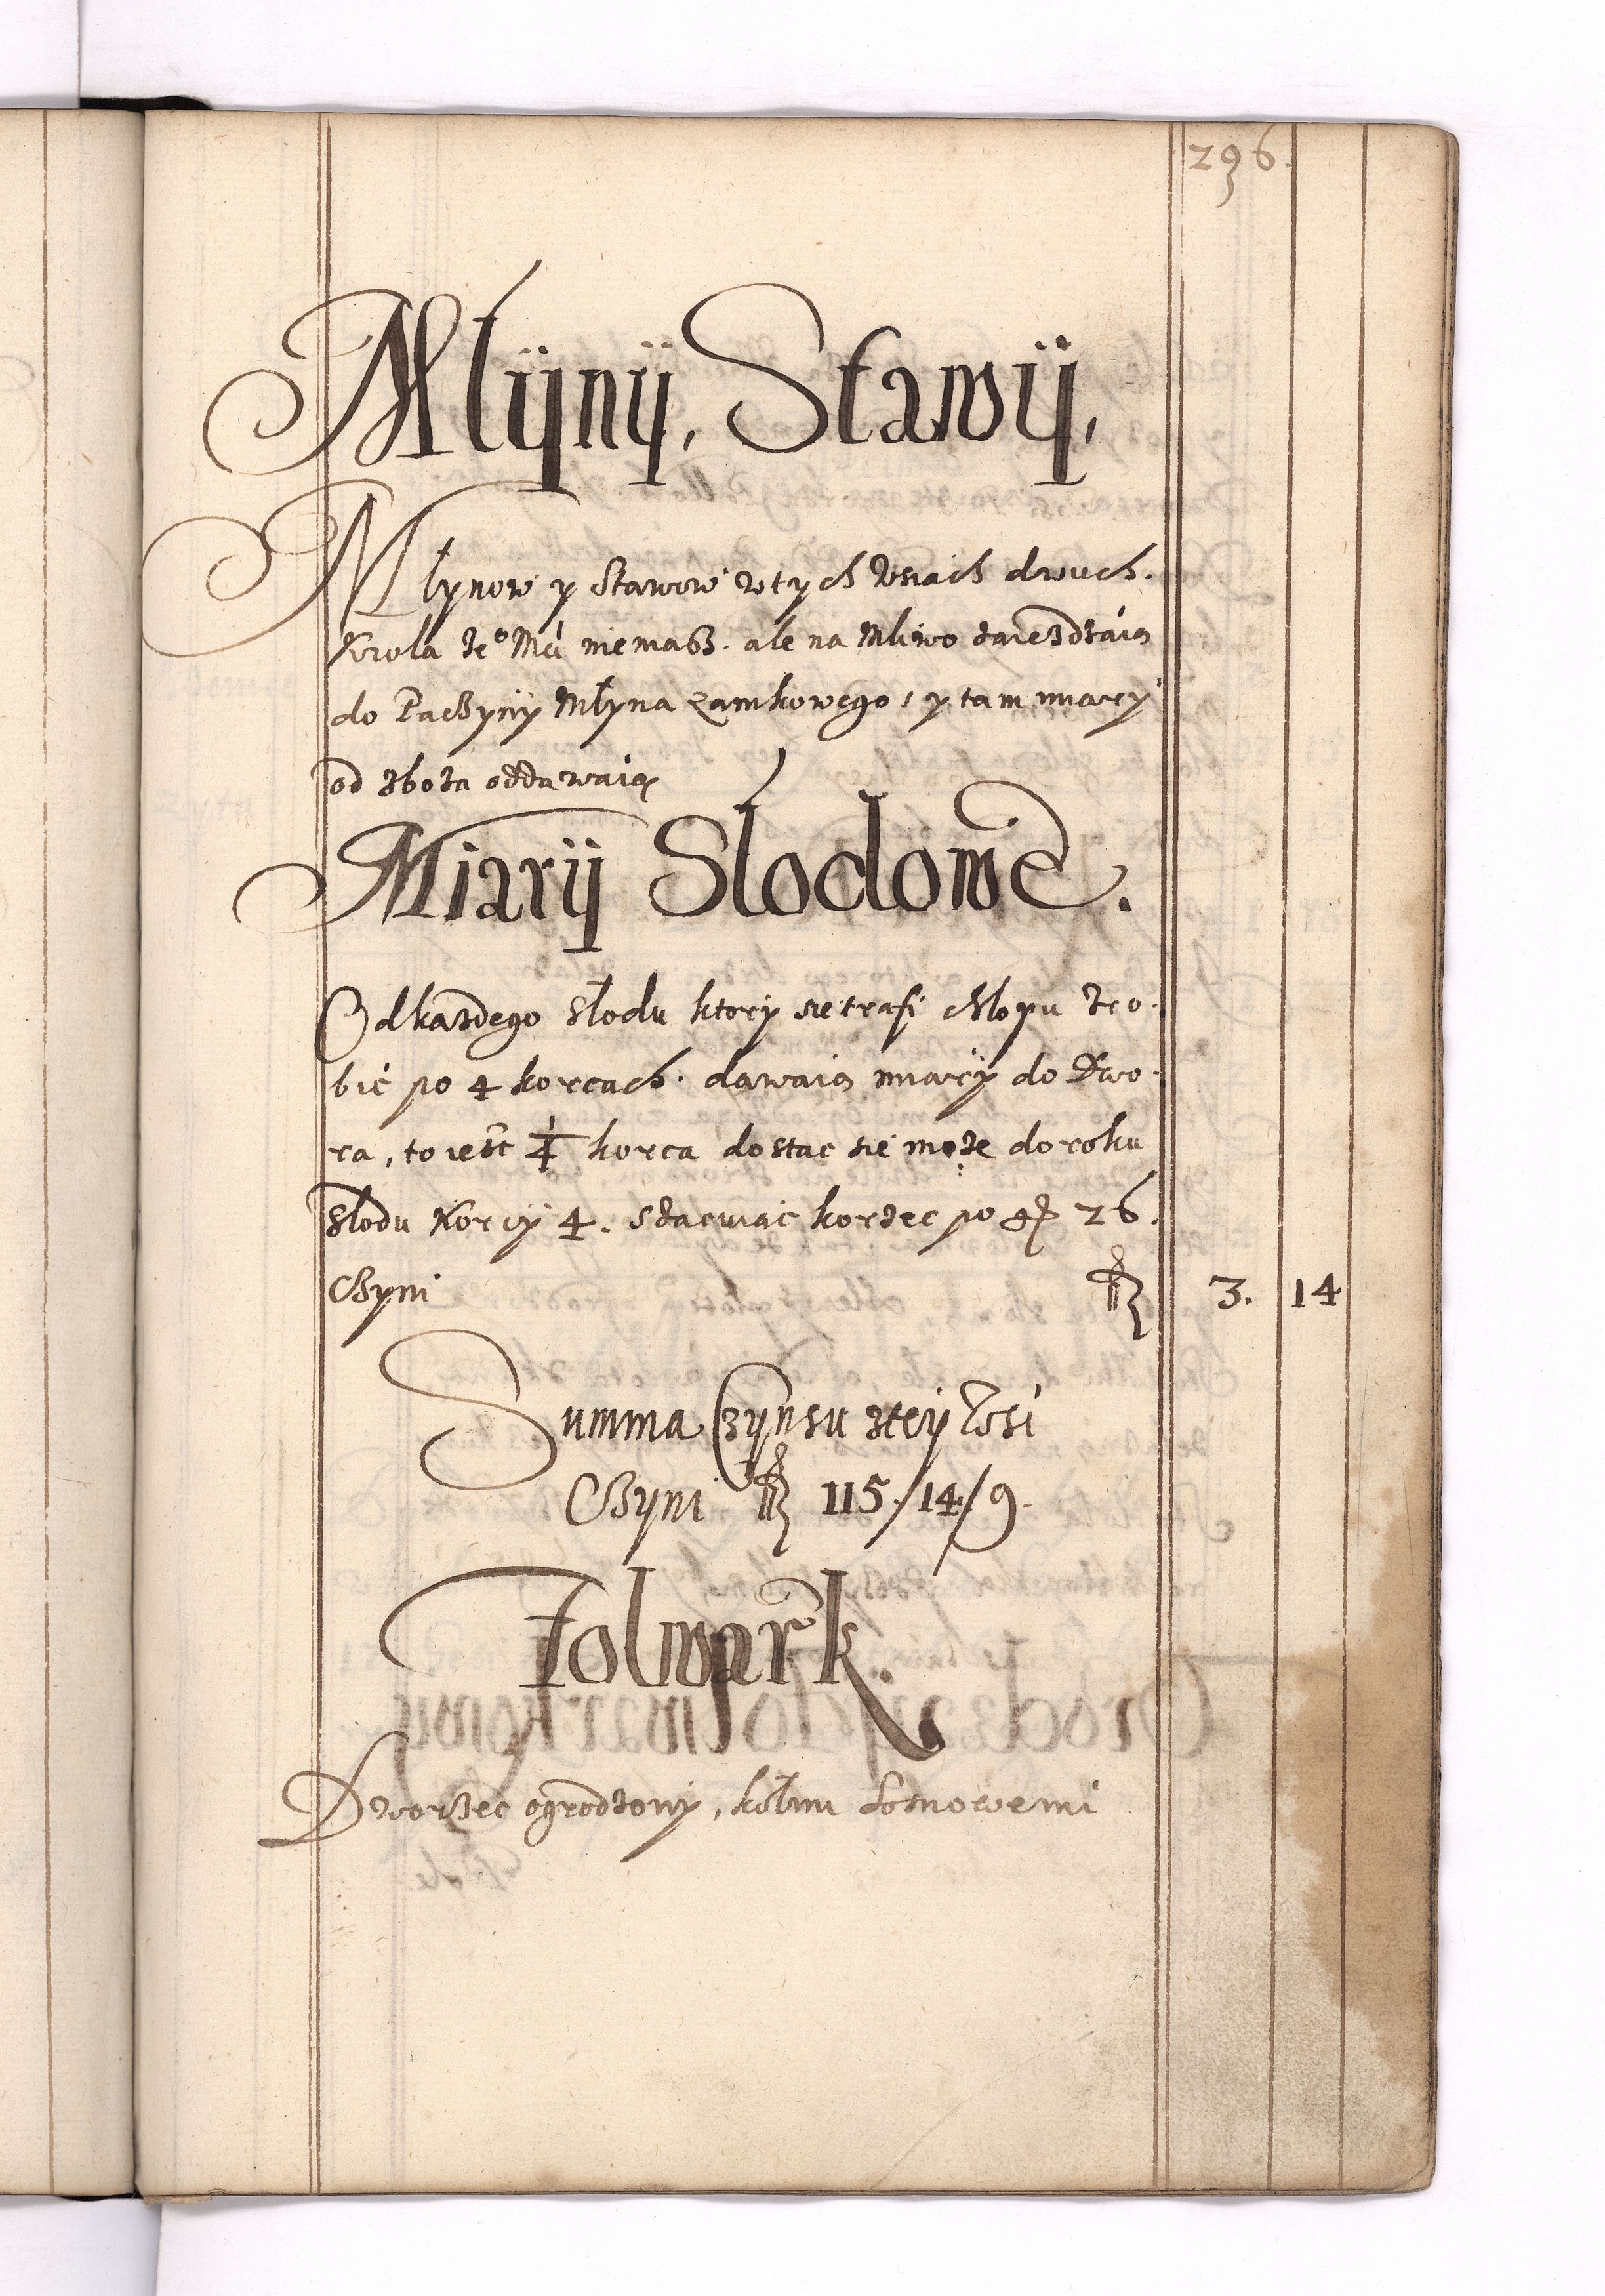 296.
Mlÿnÿ, Stawÿ,
Młynow y Stawow wtych wsiach dwuch.
Krola Jeº Mći niemasz. ale na Mliwo zaiezdzáią
do Paczÿnÿ Młyna zamkowego, y tam miary
od zboza oddawaią
Miarÿ Slodowe.
Odkazdego Słodu ktorÿ sie trafi chłopu zro-
bić po 4 korcach. dawaią miarÿ do Dwo-
ra, to iest 1/4 korca dostac sie moze do roku
Słodu Korcÿ 4. szacuiąc korzec po gr 26.
Czyni fl 3. 14
Summa Czÿnsu zteÿ Wsi
Czyni fl 115/14/9.
Folwark.
Dworzec ogrodzonÿ, kołmi sosnowemi